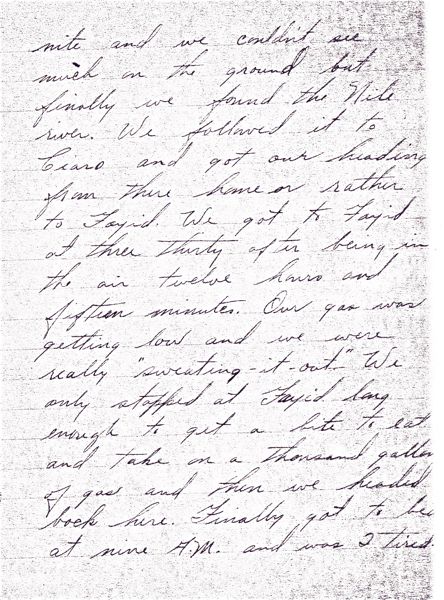 nite and we couldn't see
much on the ground but
finally we found the Nile
river. We followed it to
Ciaro and got our heading
from there home or rather
to Fayid. We got to Fayid
at three thirty after being in
the air twelve hours and
fifteen minutes. Our gas was
getting low and we were
really "sweating-it-out." We
only stopped at Fayid long
enough to get a bite to eat
and take on a thousand gallon
of gas and then we headed
back here. Finally got to bed
at nine A.M. and was I tired.